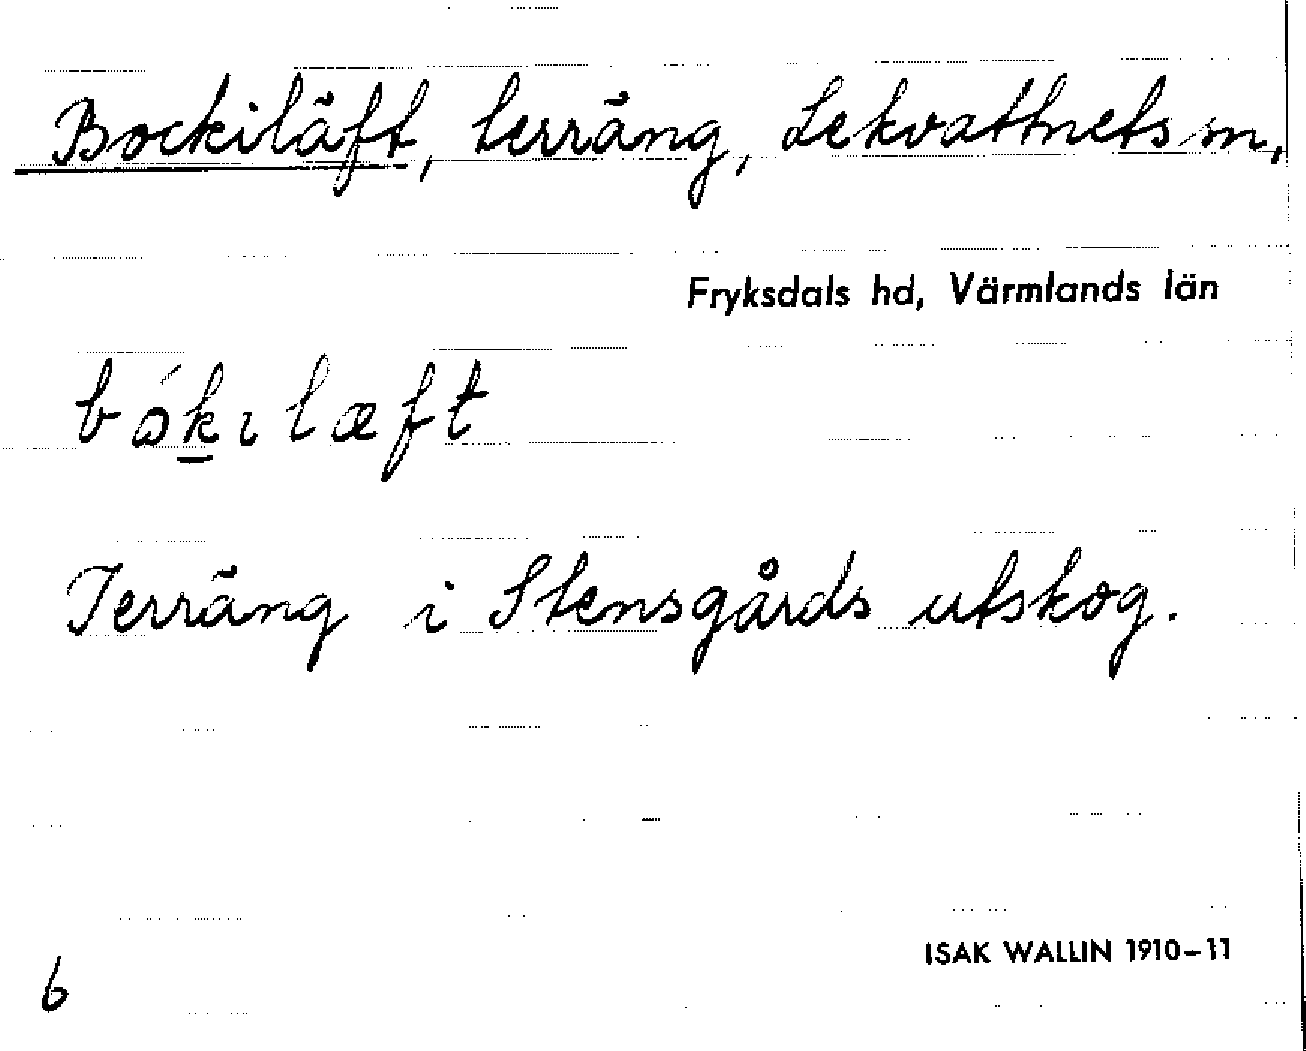 Bockiläft, terräng, Lekvattnets sn,
Fryksdals hd, Värmlands län
bókılæft
Terräng i Stensgårds utskog.
ISAK WALLIN 1910–11
6